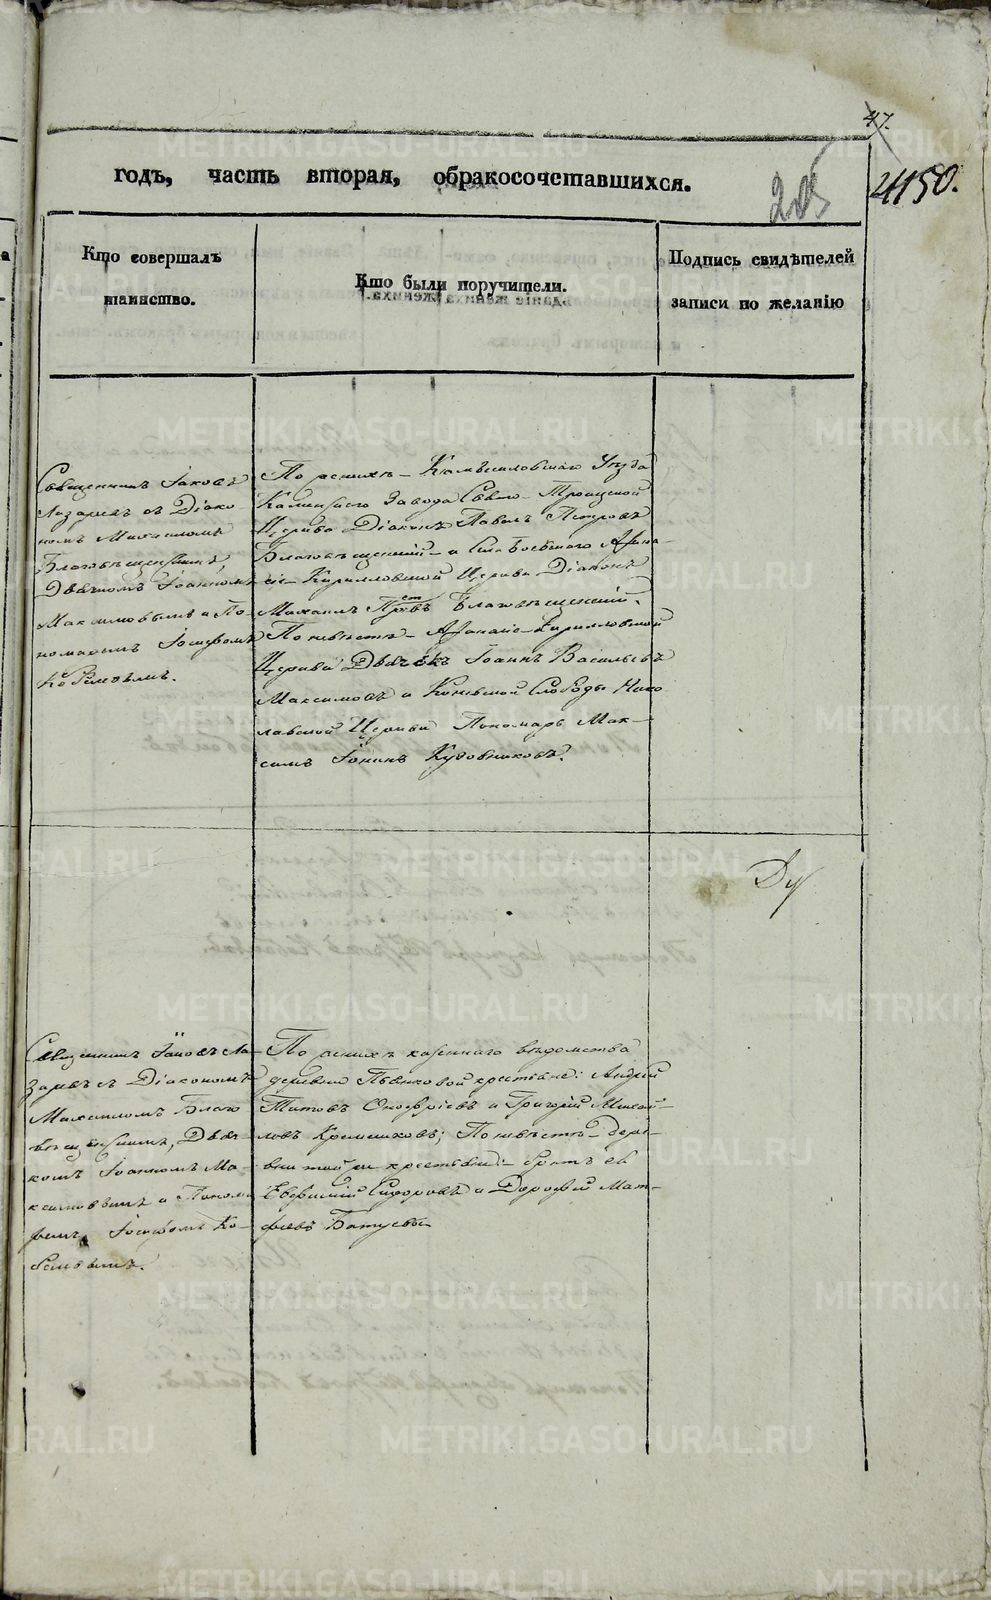 47.
годъ, часть вторая, обракосочетавшихся.
20
4150.
Кто совершалъ
таинство.
Кто были поручители.
Подпись свидѣтелей
записи по желанію
Священникъ Іаковъ
Лазаревъ съ Діако-
номъ Михаиломъ
Благовѣщенскимъ,
Дьячкомъ Іоанномъ
Максимовымъ и По-
номаремъ Іосифомъ
По женихѣ – Камышловскаго Уѣзда
Каменскаго Завода Свято-Троицкой
Церкви Діаконъ Павелъ Петровъ
Благовѣщенскій – и Села Боевскаго Афана-
сіе-Кирилловской Церкви Діаконъ
Михаилъ Благовѣщенскій.
По невѣстѣ – Афанасіе-Кирилловской
Церкви Дьячекъ Іоаннъ Васильевъ
Максимовъ и Слободы Нико-
лаевской Церкви Пономарь Мак-
симъ
Ду
Священникъ Іаковъ Ла-
заревъ съ Діакономъ
Михаиломъ Благо
вѣщенскимъ, Дьяч-
комъ Іоанномъ Ма-
ксимовымъ и Понома
ремъ Іосифомъ Ко-
По женихѣ казеннаго вѣдомства
деревни крестьяне: Андрей
Титовъ и Григорій Михай-
ловъ По невѣстѣ – дерев-
ни той же крестьяне: братъ ея
Евфимій Сидоровъ и Дорофей Мат-
фѣевъ
METRIKI.GASO-URAL.RU